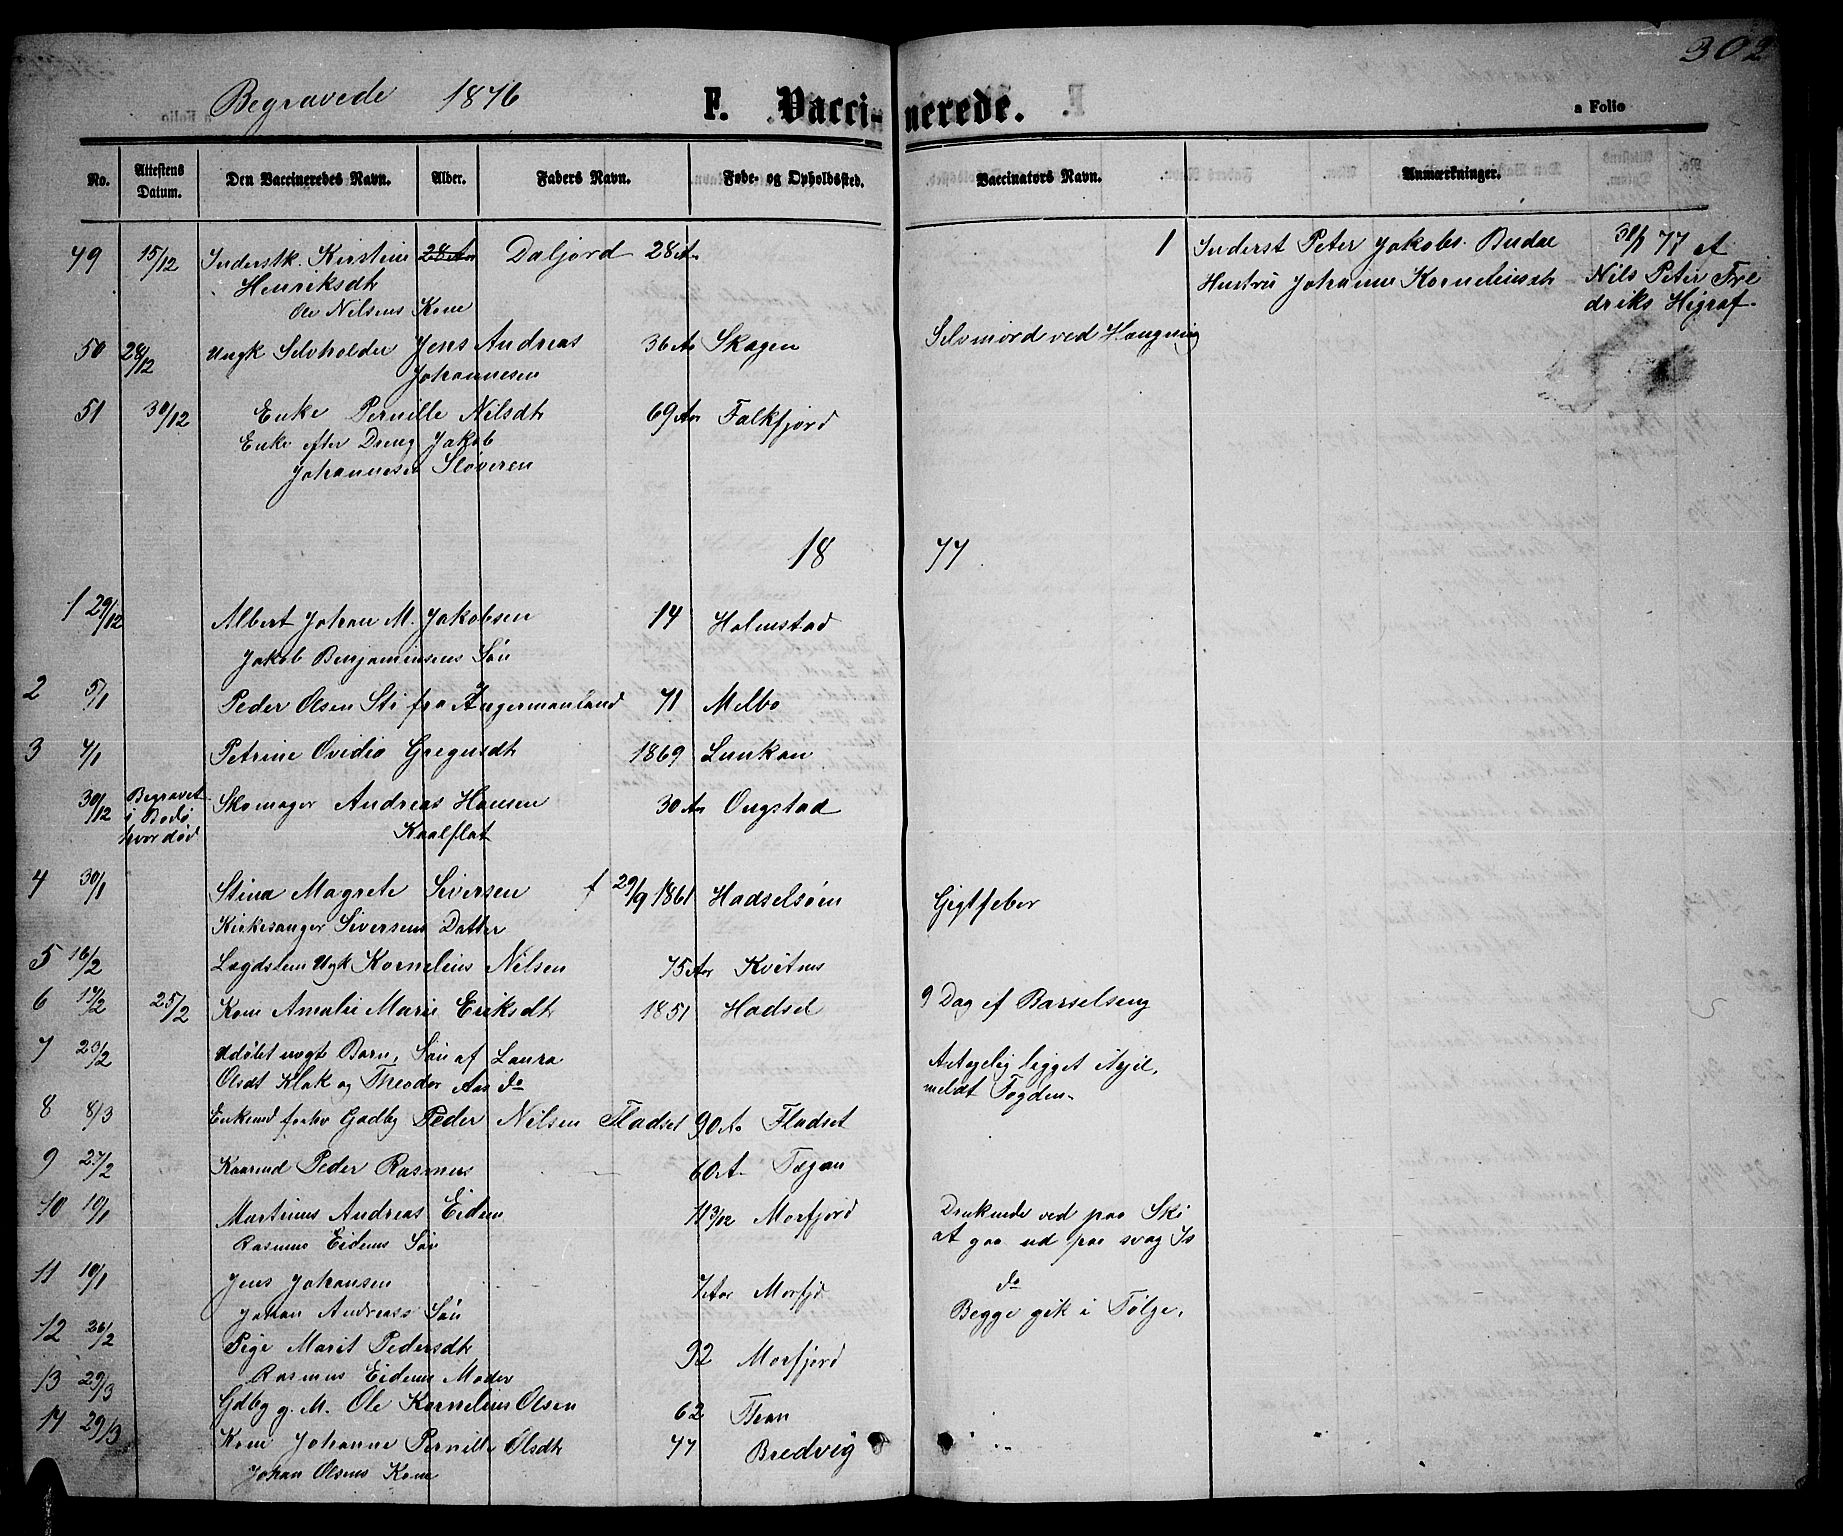 302
Begravede 1876 F. Vacci- nerede. a Folio
No. Attestens Datum. Den Vaccineredes Navn. Alder. Faders Navn. Føde- og Opholdssted. Vaccinators Navn. Anmærkninger.
49 15/12 Inderstk. Kirstine 28 Aar Daljord 28 Ar
Henriksdtr
Ole Nilsens Kone
1 Inderst Peter Jakobs. Budal 77 et
Hustru Johanne Korneliusdtr Nils Peter Fre
driks Higraf.
50 28/12 Ungk Selvholder Jens Andreas 36 Ar Skagen Selvmord ved Hængning
Johannesen
51 30/12 Enke Pernille Nilsdtr 69 Ar Falkfjord
Enke efter Dreng Jakob
Johannesen Sløveren
18 77
1 29/12 Albert Johan M. Jakobsen 14 Holmstad
Jakob Benjaminsens Søn
2 5/1 Peder Olsen Sti fra Angermanland 71 Melbo
3 4/1 Petrine Ovidia Gregusdtr 1869 Lunkan
30/12 Begravet Skomager Andreas Hansen 30 Ar Ongstad
i Bodø
hvor død Kaalflat
4 30/1 Stina Magrete Siversen f 29/9 1861 Hadseløien Gigtfeber
Kirkesanger Siversens Datter
5 16/2 Lægdslem Ugk Kornelius Nilsen 75 Ar Kvitnes
6 17/2 25/2 Kone Amalie Marie Eriksdtr 1851 Hadsel 9 Dag ef Barselseng
7 23/2 Udøbt uægte Barn, Søn af Laura
Olsdt Klak og Theodor Aas do
ligget ihjel,
meldt Fogden.
8 8/3 Enkemd forhv Gadbg Peder Nilsen Fladset 90 Ar Fladset
9 27/2 Kaarmd Peder Rasmus 60 A Tøgan
10 10/1 Martinus Andreas Eidem 11 3/12 Morfjord Druknede ved paa Ski
Rasmus Eidems Søn at gaa ud paa svag Is
11 10/1 Jens Johansen 7 Aar Morfjd do
Johan Andreass Søn Begge gik i Følge.
12 26/2 Pige Marit Pedersdtr 92 Morfjord
Rasmus Eidems Moder
13 29/3 Gdbg g. M. Ole Kornelius Olsen 62 Tten
14 29/3 Kone Johanne Pernille Olsdtr 77 Bredvig
Johan Olsens Kone